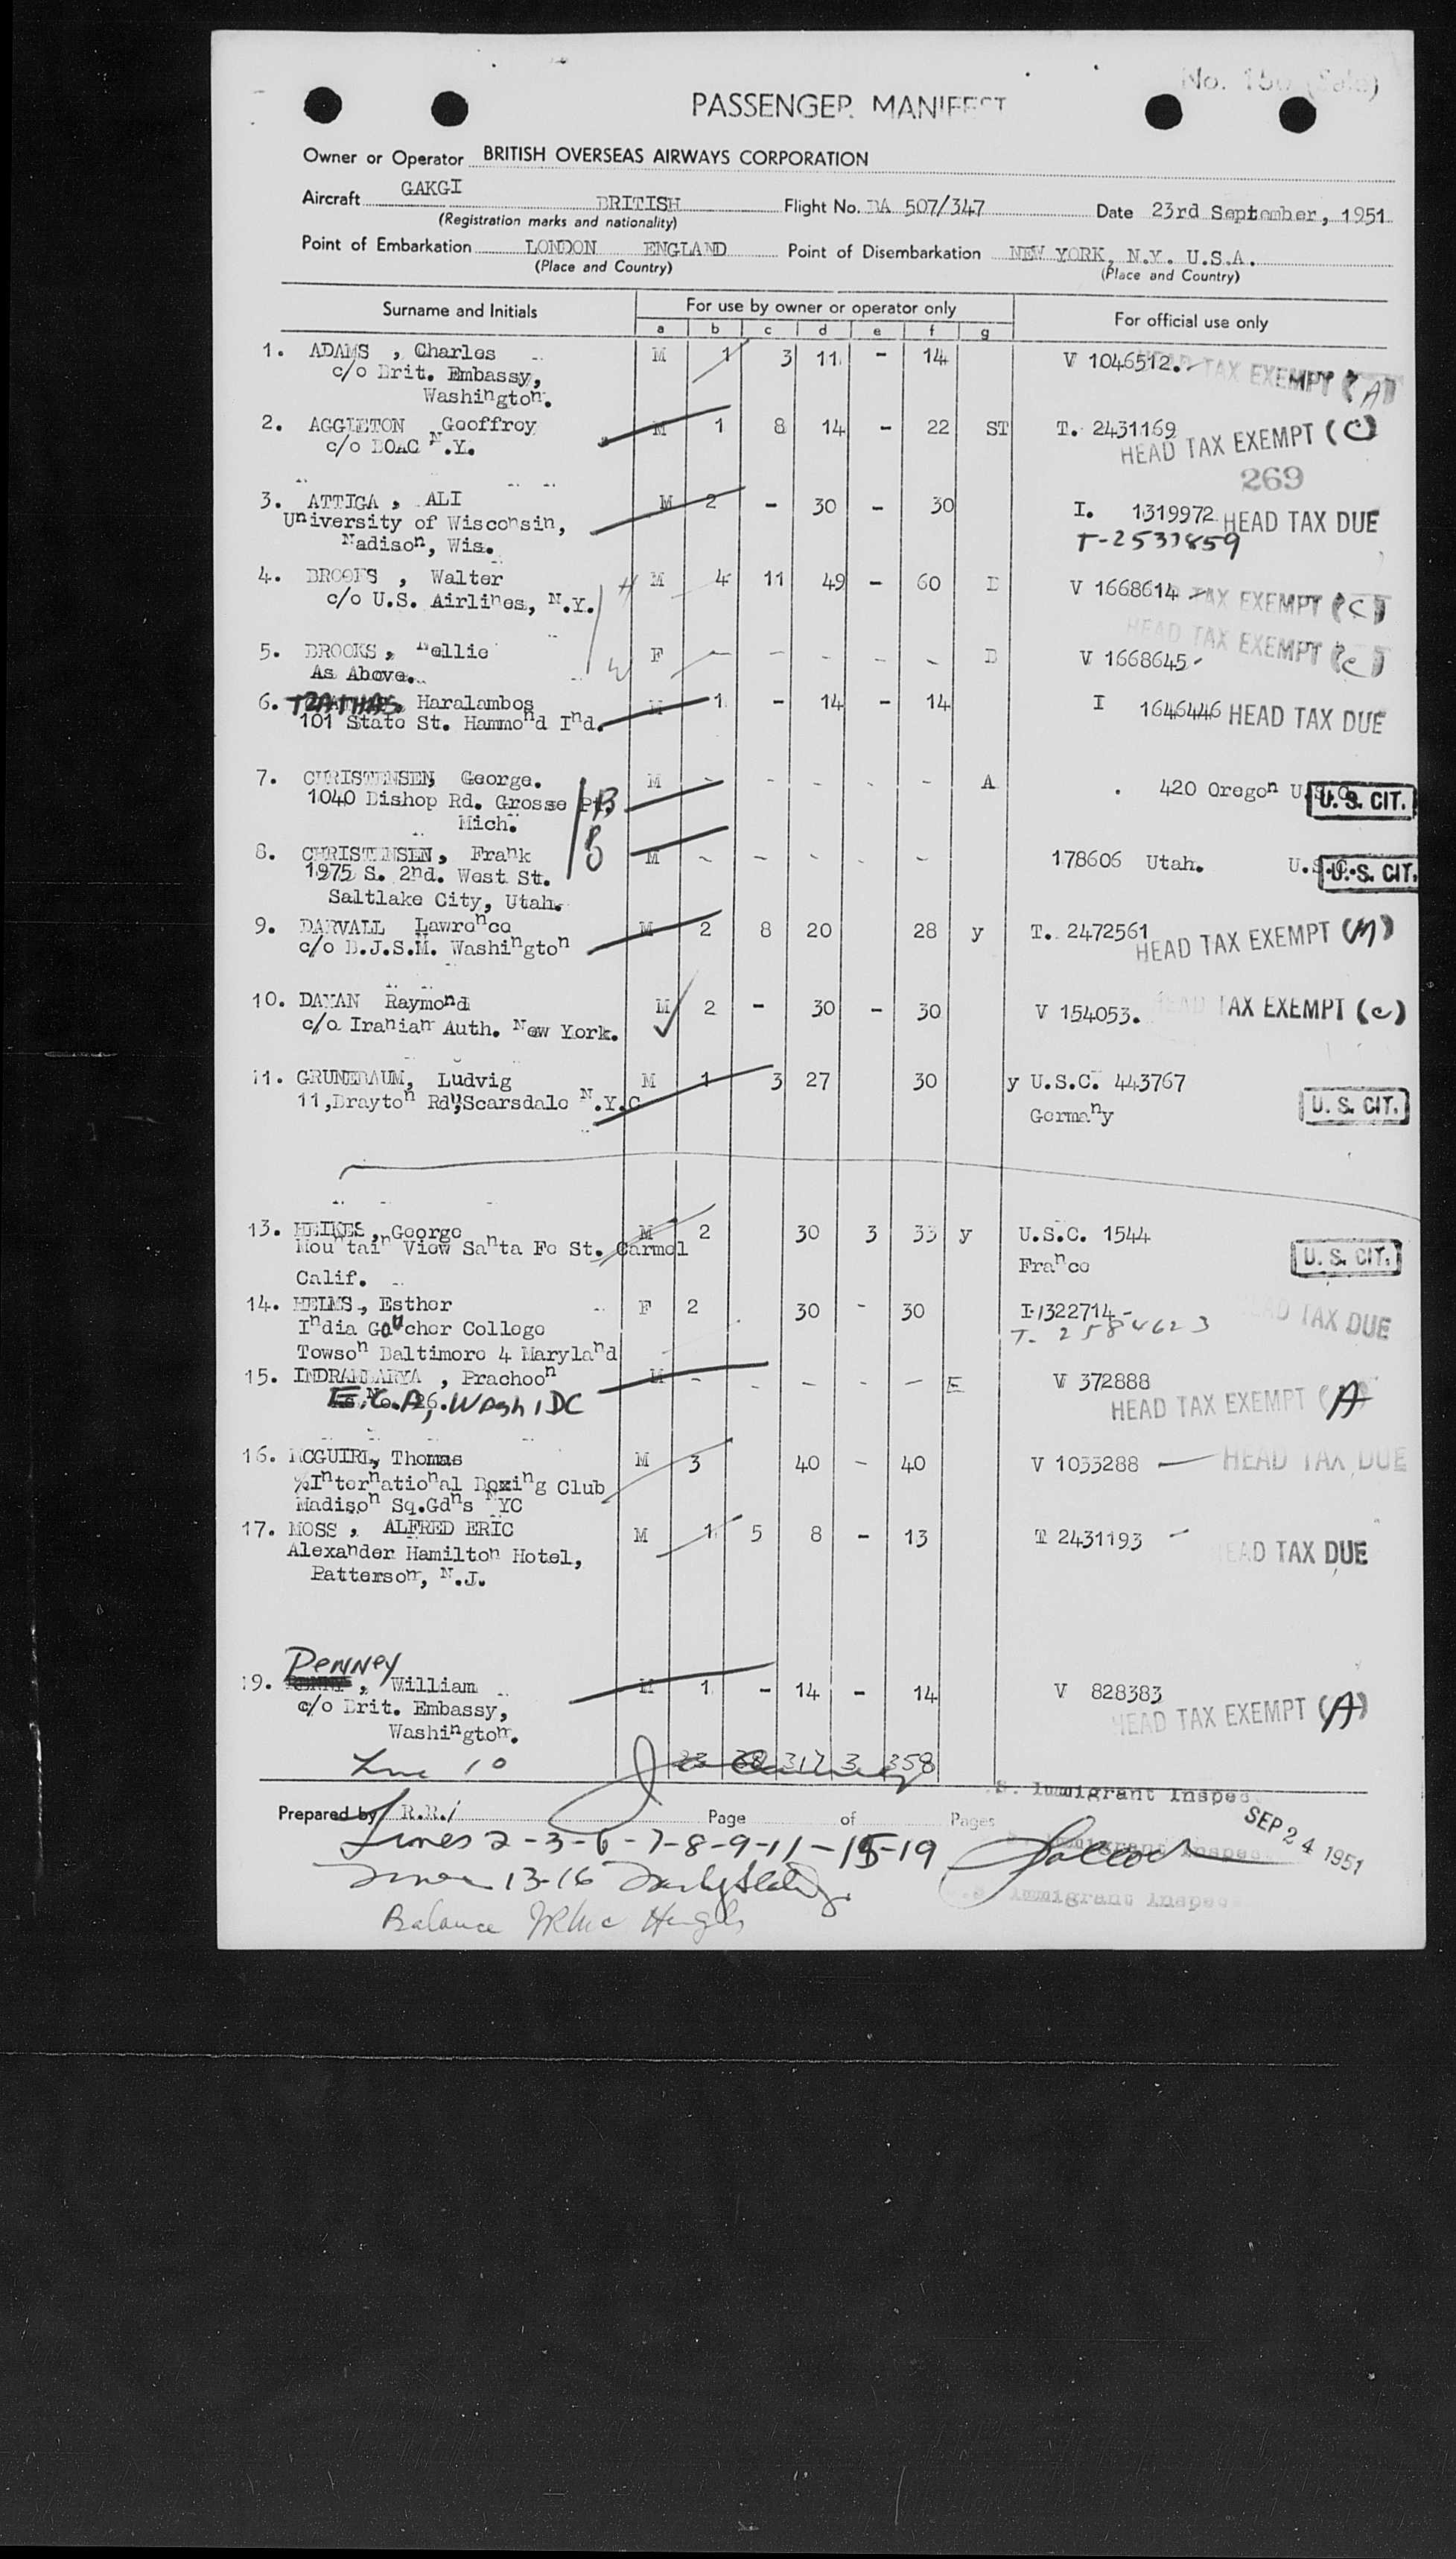 No. 150 (Sale)
PASSENGER MANIFEST
Owner or Operator BRITISH OVERSEAS AIRWAYS CORPORATION
Aircraft GAKGI BRITISH Flight No. BA 507/347 Date 23rd September, 1951
(Registration marks and nationality)
Point of Embarkation LONDON ENGLAND Point of Disembarkation NEW YORK, N.Y. U.S.A.
(Place and Country) (Place and Country)
Surname and Initials For use by owner or operator only For official use only
a b c d e f g
1. ADAMS , Charles M 1 3 11 - 14 V 1046512. HEAD TAX EXEMPT (A)
c/o Brit. Embassy,
Washington.
2. AGGLETON Geoffroy M 1 8 14 - 22 ST T. 2431169
c/o BOAC N.Y. HEAD TAX EXEMPT (C)
269
3. ATTIGA , ALI M 2 - 30 - 30 I. 1319972 HEAD TAX DUE
University of Wisconsin, T-2533859
Madison, Wis.
4. BROOKS , Walter M 4 11 49 - 60 D V 1668614 TAX EXEMPT (C)
c/o U.S. Airlines, N.Y. H
HEAD TAX EXEMPT (C)
5. BROOKS, Nellie F - - - - - D V 1668645
As Above. W
6. Haralambos M 1 - 14 - 14 I 1646446 HEAD TAX DUE
101 State St. Hammond Ind.
7. CHRISTENSEN, George. M - - - - - A 420 Oregon U.S.C. U. S. CIT.
1040 Bishop Rd. Grosse Pt. B
Mich.
8. CHRISTENSEN, Frank M - - - - - 178606 Utah. U.S.C. U. S. CIT.
1975 S. 2nd. West St.
Saltlake City, Utah.
9. DARVALL Lawrence M 2 8 20 28 y T. 2472561
c/o B.J.S.M. Washington HEAD TAX EXEMPT (M)
10. DAYAN Raymond M 2 - 30 - 30 V 154053. HEAD TAX EXEMPT (C)
c/o Iranian Auth. New York.
11. GRUNEBAUM, Ludvig M 1 3 27 30 y U.S.C. 443767
11,Brayton Rd,Scarsdale N.Y.C Germany U. S. CIT.
13. HEIKES, George M 2 30 3 33 y U.S.C. 1544
Mountain View Santa Fe St. Carmel France U. S. CIT.
Calif.
14. HELMS, Esther F 2 30 - 30 I-1322714- HEAD TAX DUE
India Goucher College T- 2584623
Towson Baltimore 4 Maryland
15. INDRAMBARYA , Prachoon M - - - - - E V 372888
E.C.A, Wash, DC HEAD TAX EXEMPT (A)
16. MCGUIRE, Thomas M 3 40 - 40 V 1033288 HEAD TAX DUE
%International Boxing Club
Madison Sq.Gdns NYC
17. MOSS , ALFRED ERIC M 1 5 8 - 13 T 2431193
Alexander Hamilton Hotel, HEAD TAX DUE
Patterson, N.J.
Penney
19. , William M 1 - 14 - 14 V 828383
c/o Brit. Embassy, HEAD TAX EXEMPT (A)
Washington.
Line 10 23 38 317 3 358
U.S. Immigrant Inspec
Prepared by R.R. Page of Pages SEP 24 1951
Lines 2-3-6-7-8-9-11-15-19
13-16
U.S. Immigrant Inspec
Balance